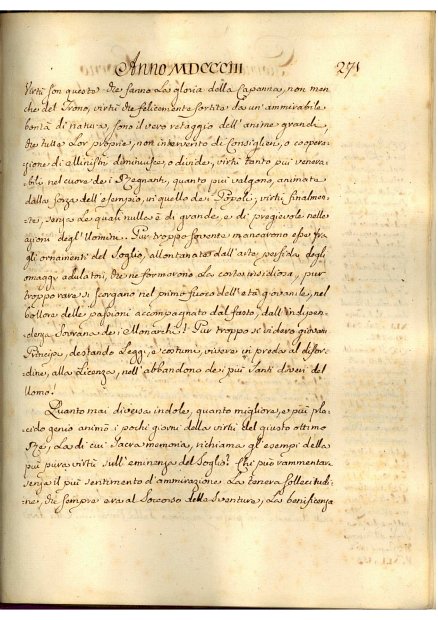 Anno MDCCCIII 271
Virtù son queste che fanno La gloria della Capanna, non men
che del Trono, virtù che felicemente sortite da un' ammirabile
bontà di natura, sono il vero retaggio dell' anime grandi,
che tutte Lor proprie, non intervento di Consiglieri, o coopera-
zione di Ministri diminuisce, o divide, virtù tanto più venera-
bili nel cuore de' i Regnanti, quanto più valgono, animate
dalla forza dell' esempio, in quello de' i Popoli, virtù finalmen-
te, senza Le quali nulla è di grande, e di pregievole nelle
azioni degl' Uomini. Pur troppo sovente mancarono esse fra
gli ornamenti del Soglio, allontanate dall' arte perfida degli
omaggi adulatori, che ne formarono La corte insidiosa, pur
troppo rare si scorgano nel primo fuoco dell' età giovanile, nel
bollore delle passioni accompagnato dal fasto, dall' indipen-
denza Sovrana de' i Monarchi! Pur troppo si videro giovani
Principi, destando Leggi, e costumi, vivere in preda al disor-
dine, alla Licenza, nell' abbandono de' più Santi doveri del
Uomo!
Quanto mai diversa indole, quanto migliore, e più pla-
cido genio animò i pochi giorni della virtù del giusto ottimo
Rè, La di cui Sacra memoria, richiama gl' esempi della
più pura virtù sull' eminenza del Soglio! Chi può rammentare
senza il più sentimento d'ammirazione La tenera sollecitudi-
ne, che sempre era al Soccorso delle Sventure, La beneficenza